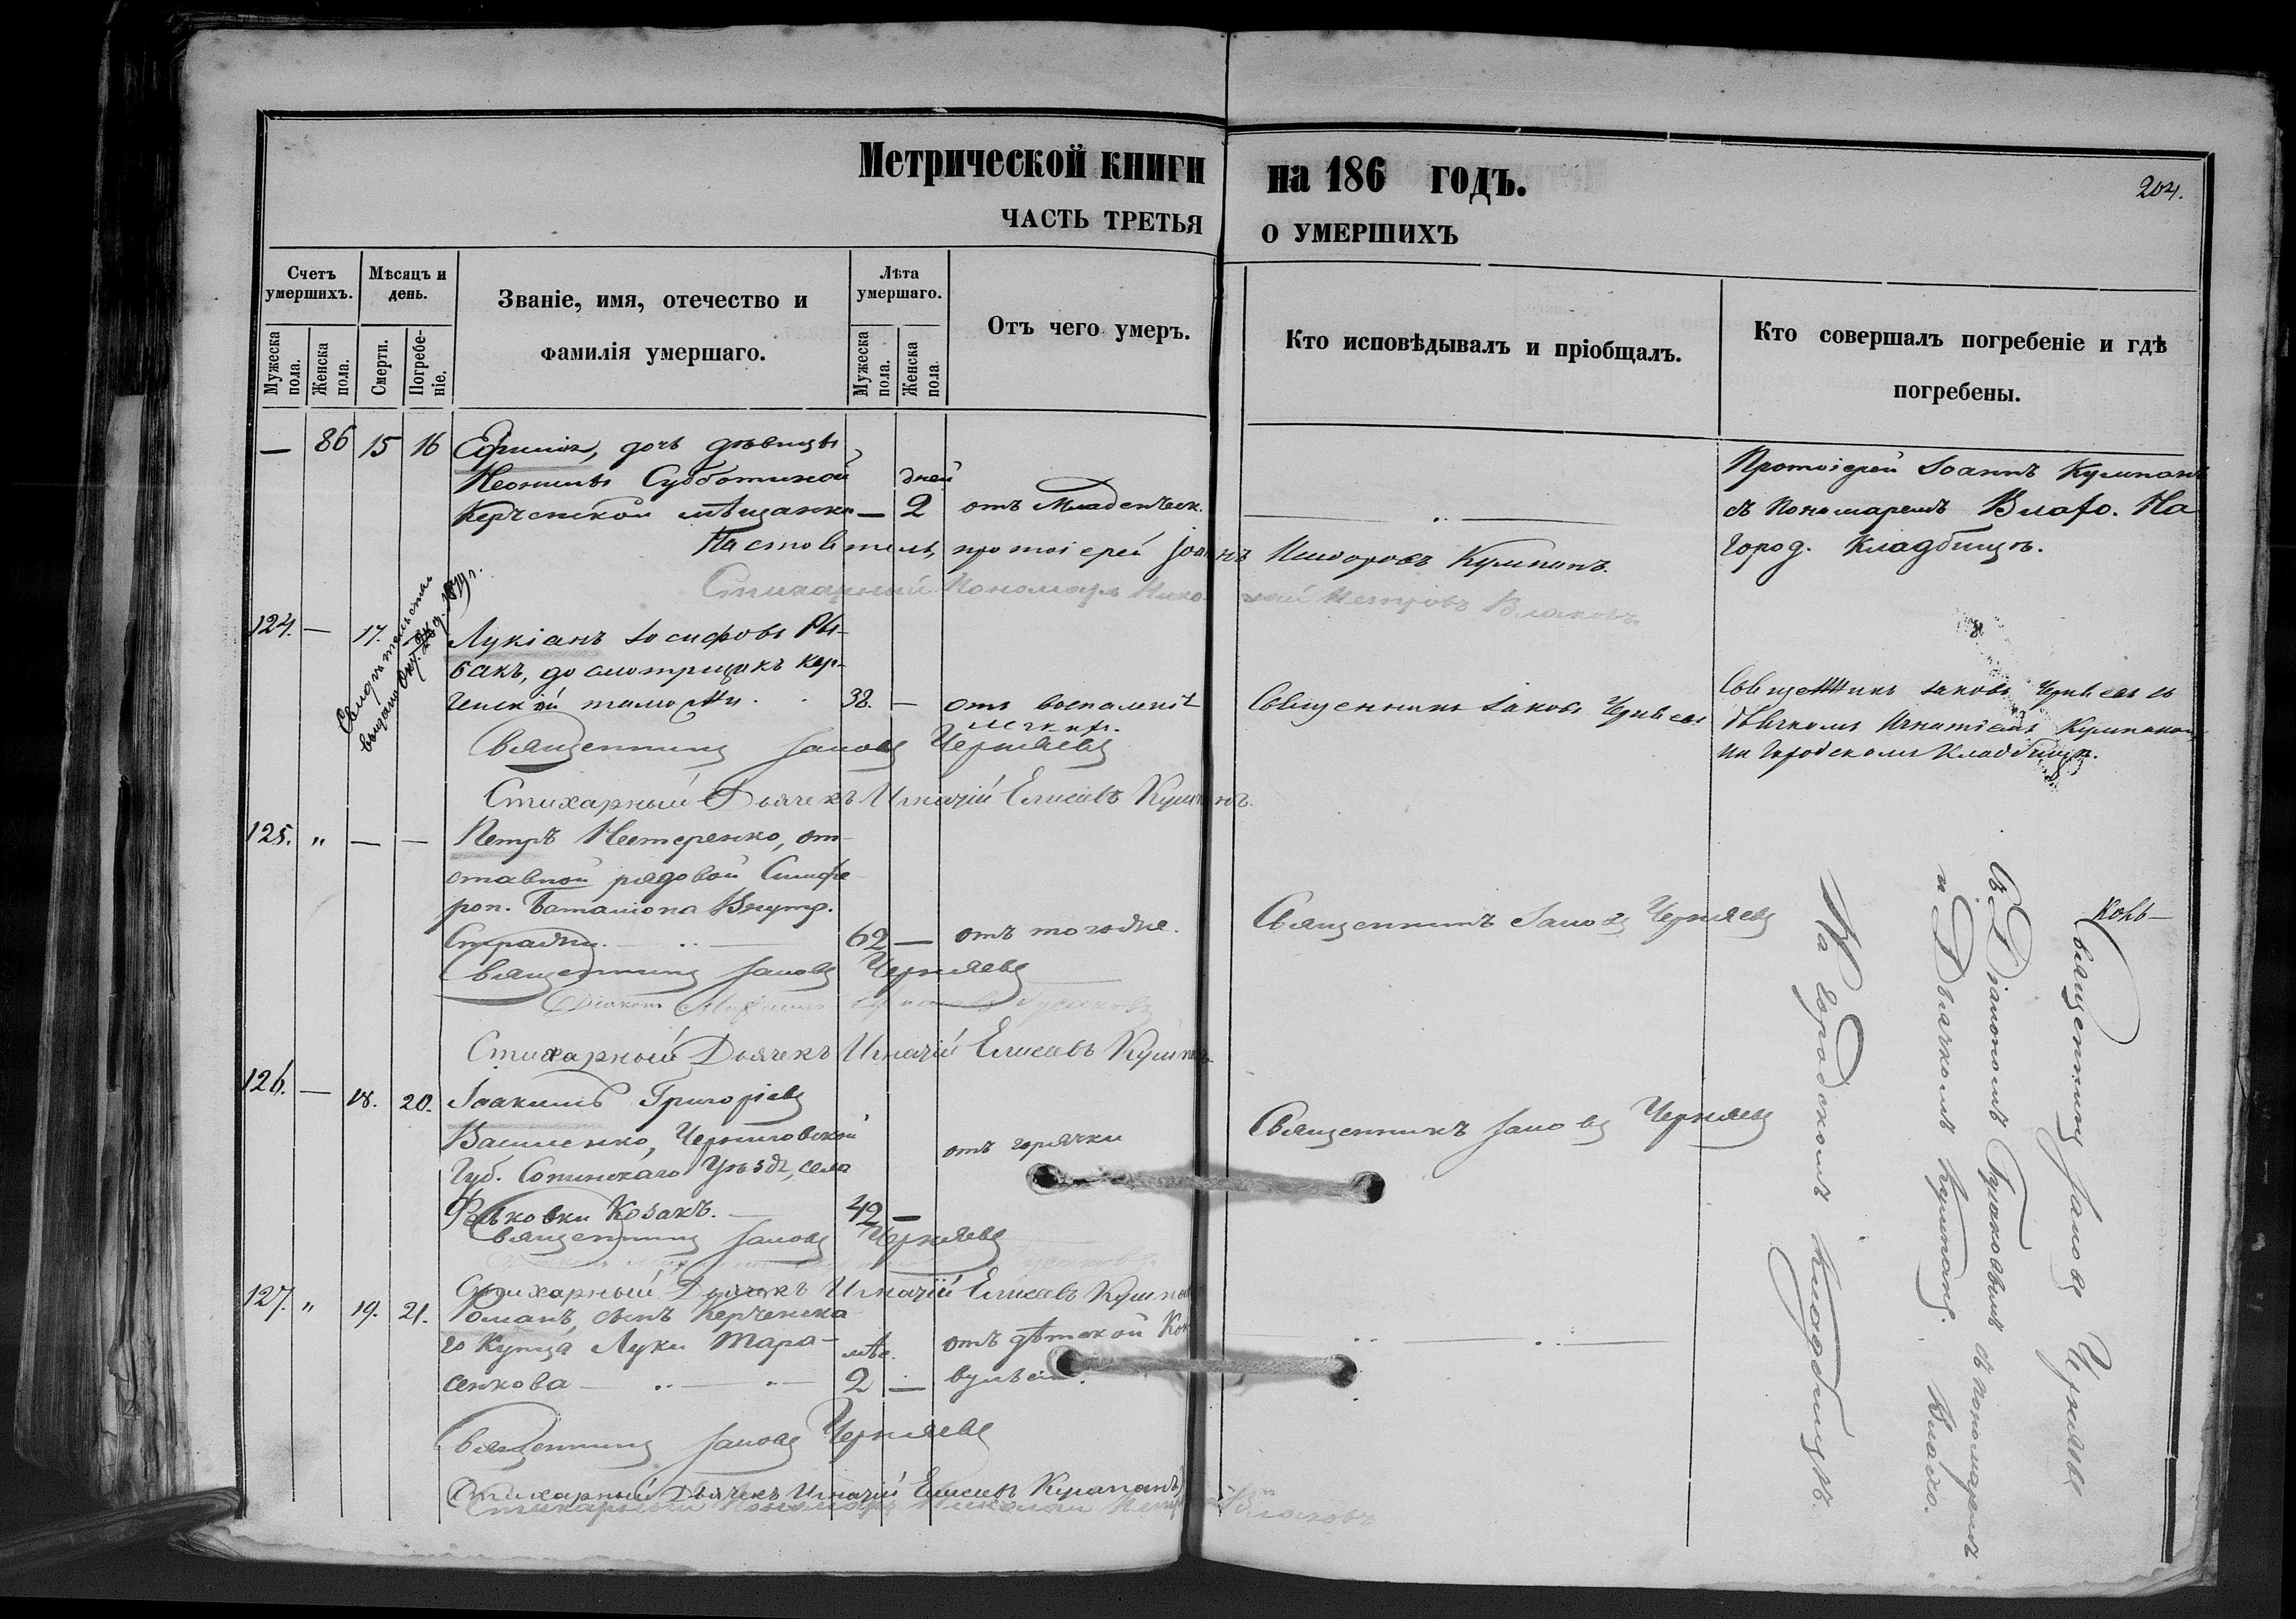 Метрической книги на 186 годъ.
204.
ЧАСТЬ ТРЕТЬЯ О УМЕРШИХЪ
Счетъ умершихъ.
Мужеска пола.
Женска пола.
Мѣсяцъ и день.
Смерти.
Погребеніе.
Званіе, имя, отечество и
фамилія умершаго.
Лѣта умершаго.
Мужеска пола.
Женска пола.
Отъ чего умеръ.
Кто исповѣдывалъ и пріобщалъ.
Кто совершалъ погребеніе и гдѣ
погребены.
— 86 15 16 дочь дѣвицы
Неонилы Субботиной дней
Керченской мѣщанки — 2 отъ Младенческ.
Настоятель, протоіерей Іоаннъ Кумпанъ.
Стихарный Пономарь Николай Петровъ Влаховъ
Протоіерей Іоаннъ Кумпанъ
съ Пономаремъ Влахо. На
Город. Кладбищѣ.
Свидѣтельство
выдано 1879 г.
124. — 17. Лукіанъ Іосифовъ Ры-
бакъ, досмотрщикъ Кер-
ченской таможни 38. — отъ воспаленія
легких.
Священникъ Іаковъ Черняевъ
Священникъ Іаковъ Черняевъ съ
дьячкомъ Игнатіемъ Кумпаномъ
на Городскомъ Кладбищѣ.
Священникъ Іаковъ Черняевъ
Стихарный Дьячекъ Игнатій Елисеевъ Кумпанъ.
125. „ — — Петръ Нестеренко, от-
ставной рядовой Симфе-
роп. Баталіона Внутр.
Стражи. 62 — отъ
Священникъ Іаковъ Черняевъ
Священникъ Іаковъ Черняевъ
Діаконъ Гусаковъ
Стихарный Дьячекъ Игнатій Елисеевъ Кумпанъ
126. — 18. 20. Іоакимъ Григоріевъ
Василенко, Черниговской
Губ. Уѣзда, села
Козакъ. 42 — отъ горячки
Священникъ Іаковъ Черняевъ
Священникъ Іаковъ Черняевъ
Стихарный Дьячекъ Игнатій Елисеевъ Кумпанъ
127. „ 19. 21. Романъ, сынъ Керченска-
го Купца Луки Тара-
сенкова мѣс. 2 — отъ дѣтской Кон
вульсіи.
Священникъ Іаковъ Черняевъ
Стихарный Дьячекъ Игнатій Елисеевъ Кумпанъ
Стихарный Пономарь Николай Петровъ Влаховъ
Священникъ Іаковъ Черняевъ
съ Діакономъ Гусаковымъ съ пономаремъ
и Дьячкомъ Кумпанъ. Влахо.
На Городскомъ Кладбищѣ.